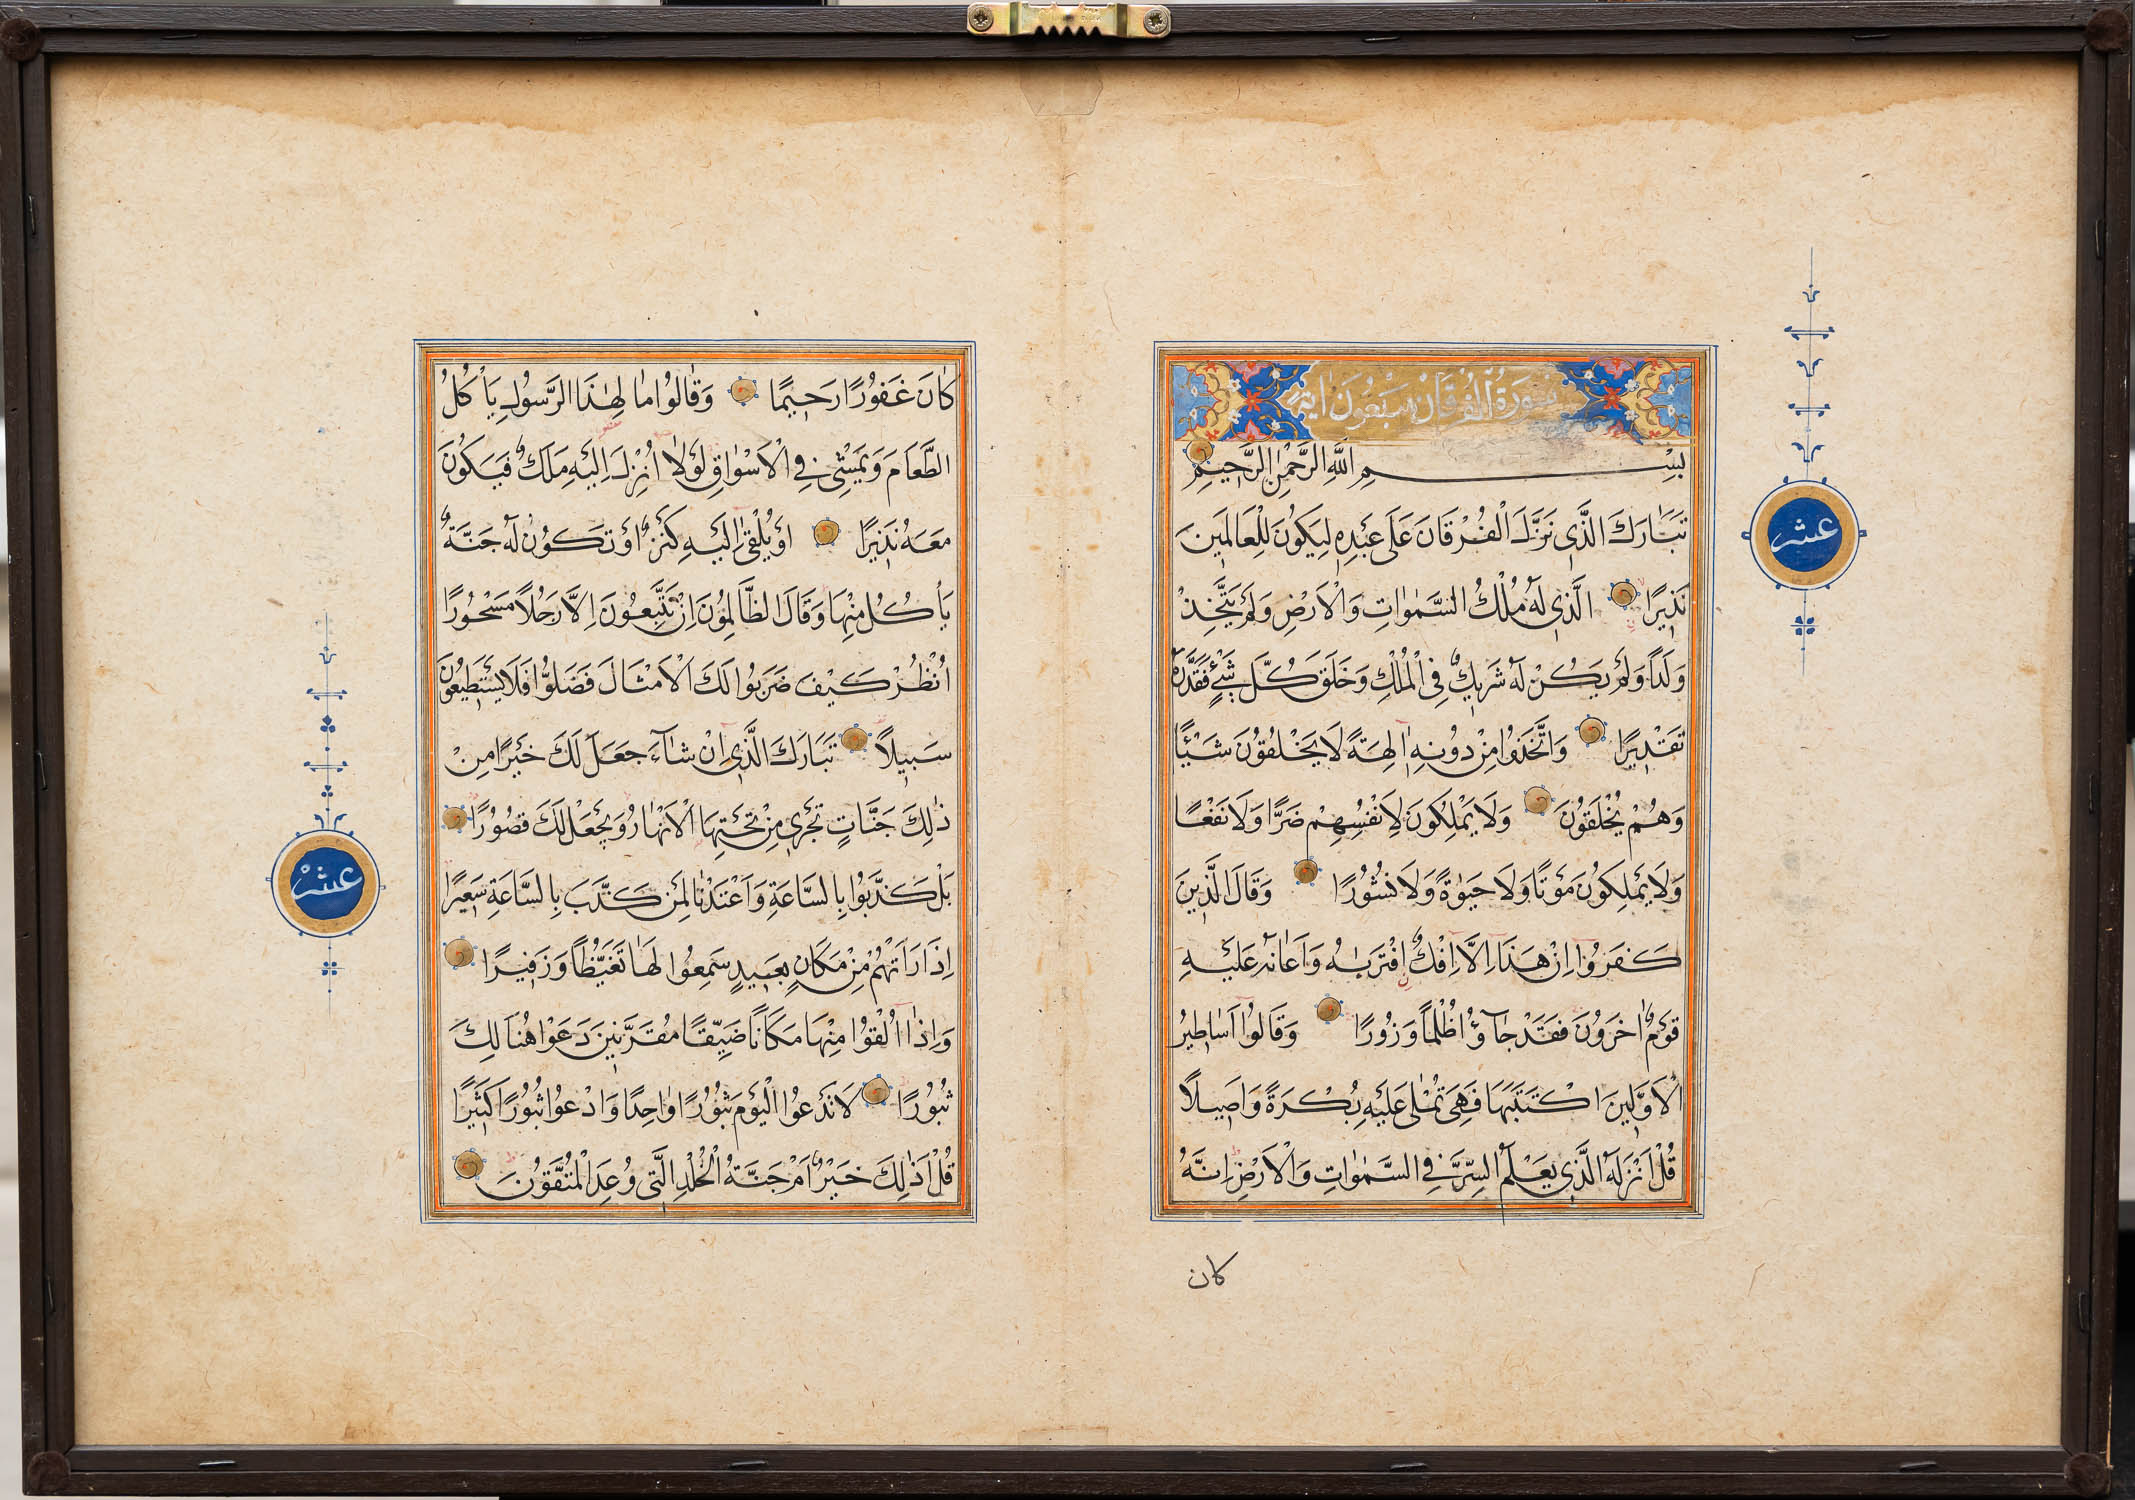 سورة الفرقان سبعون آية
بِسْمِ اللَّهِ الرَّحْمٰنِ الرَّحِيمِ
تَبَارَكَ الَّذِي نَزَّلَ الْفُرْقَانَ عَلَى عَبْدِهِ لِيَكُونَ لِلْعَالَمِينَ
نَذِيرًا الَّذِي لَهُ مُلْكُ السَّمٰوَاتِ وَالْاَرْضِ وَلَمْ يَتَّخِذْ
وَلَدًا وَلَمْ يَكُنْ لَهُ شَرِيكٌ فِي الْمُلْكِ وَخَلَقَ كُلَّ شَيْءٍ فَقَدَّرَهُ
تَقْدِيرًا وَاتَّخَذُوا مِنْ دُونِهِ اٰلِهَةً لَا يَخْلُقُونَ شَيْئًا
وَهُمْ يُخْلَقُونَ وَلَا يَمْلِكُونَ لِاَنْفُسِهِمْ ضَرًّا وَلَا نَفْعًا
وَلَا يَمْلِكُونَ مَوْتًا وَلَا حَيٰوةً وَلَا نُشُورًا وَقَالَ الَّذِينَ
كَفَرُوا اِنْ هَذَا اِلَّا اِفْكٌ افْتَرَيٰهُ وَاَعَانَهُ عَلَيْهِ
قَوْمٌ اٰخَرُونَ فَقَدْ جَاؤُا ظُلْمًا وَزُورًا وَقَالُوا اَسَاطِيرُ
الْاَوَّلِينَ اكْتَتَبَهَا فَهِيَ تُمْلٰى عَلَيْهِ بُكْرَةً وَاَصِيلًا
قُلْ اَنْزَلَهُ الَّذِي يَعْلَمُ السِّرَّ فِي السَّمٰوَاتِ وَالْاَرْضِ اِنَّهُ
كان
عشر
كَانَ غَفُورًا رَحِيمًا وَقَالُوا مَا لِهٰذَا الرَّسُولِ يَأْكُلُ
الطَّعَامَ وَيَمْشِي فِي الْاَسْوَاقِ لَوْلَا اُنْزِلَ اِلَيْهِ مَلَكٌ فَيَكُونَ
مَعَهُ نَذِيرًا اَوْ يُلْقٰى اِلَيْهِ كَنْزٌ اَوْ تَكُونُ لَهُ جَنَّةٌ
يَأْكُلُ مِنْهَا وَقَالَ الظَّالِمُونَ اِنْ تَتَّبِعُونَ اِلَّا رَجُلًا مَسْحُورًا
اُنْظُرْ كَيْفَ ضَرَبُوا لَكَ الْاَمْثَالَ فَضَلُّوا فَلَا يَسْتَطِيعُونَ
سَبِيلًا تَبَارَكَ الَّذِي اِنْ شَاءَ جَعَلَ لَكَ خَيْرًا مِنْ
ذٰلِكَ جَنَّاتٍ تَجْرِي مِنْ تَحْتِهَا الْاَنْهَارُ وَيَجْعَلْ لَكَ قُصُورًا
بَلْ كَذَّبُوا بِالسَّاعَةِ وَاَعْتَدْنَا لِمَنْ كَذَّبَ بِالسَّاعَةِ سَعِيرًا
اِذَا رَاَتْهُمْ مِنْ مَكَانٍ بَعِيدٍ سَمِعُوا لَهَا تَغَيُّظًا وَزَفِيرًا
وَاِذَا اُلْقُوا مِنْهَا مَكَانًا ضَيِّقًا مُقَرَّنِينَ دَعَوْا هُنَالِكَ
ثُبُورًا لَا تَدْعُوا الْيَوْمَ ثُبُورًا وَاحِدًا وَادْعُوا ثُبُورًا كَثِيرًا
قُلْ اَذٰلِكَ خَيْرٌ اَمْ جَنَّةُ الْخُلْدِ الَّتِي وُعِدَ الْمُتَّقُونَ
عشر